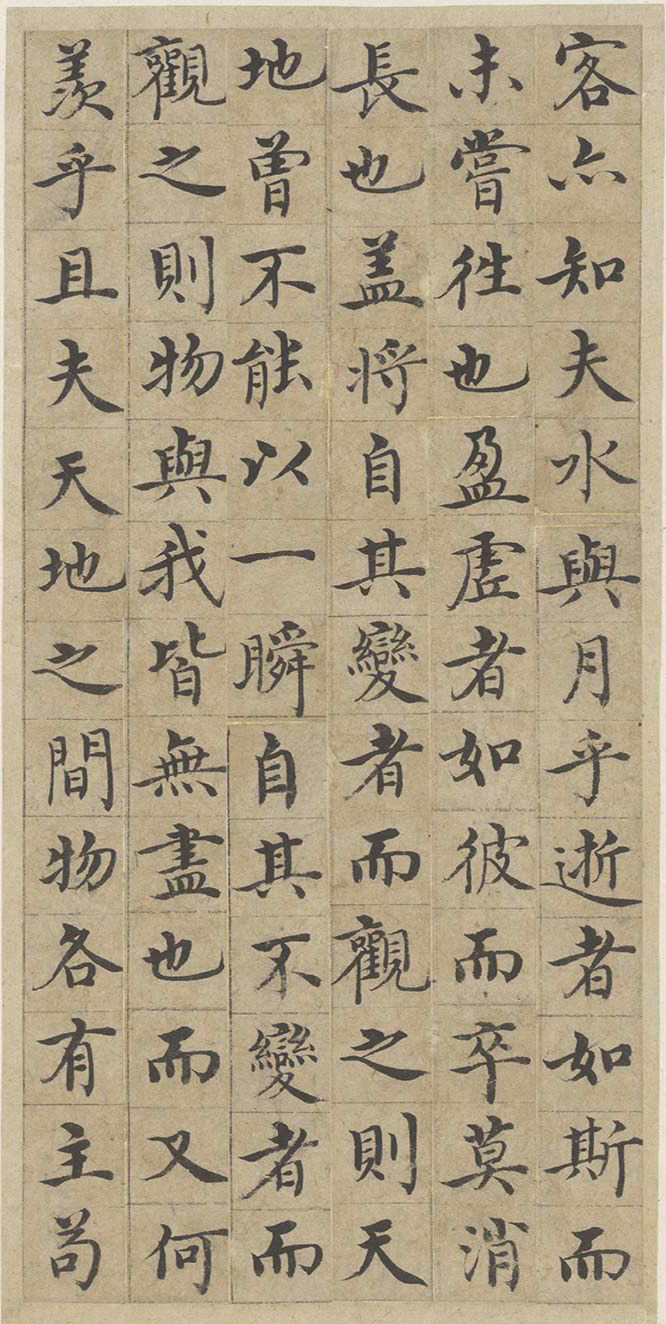 客亦知夫水與月乎逝者如斯而
未嘗徃也盈虛者如彼而卒莫消
長也盖將自其變者而觀之則天
地曾不能以一瞬自其不變者而
觀之則物與我皆無盡也而又何
羨乎且夫天地之間物各有主苟